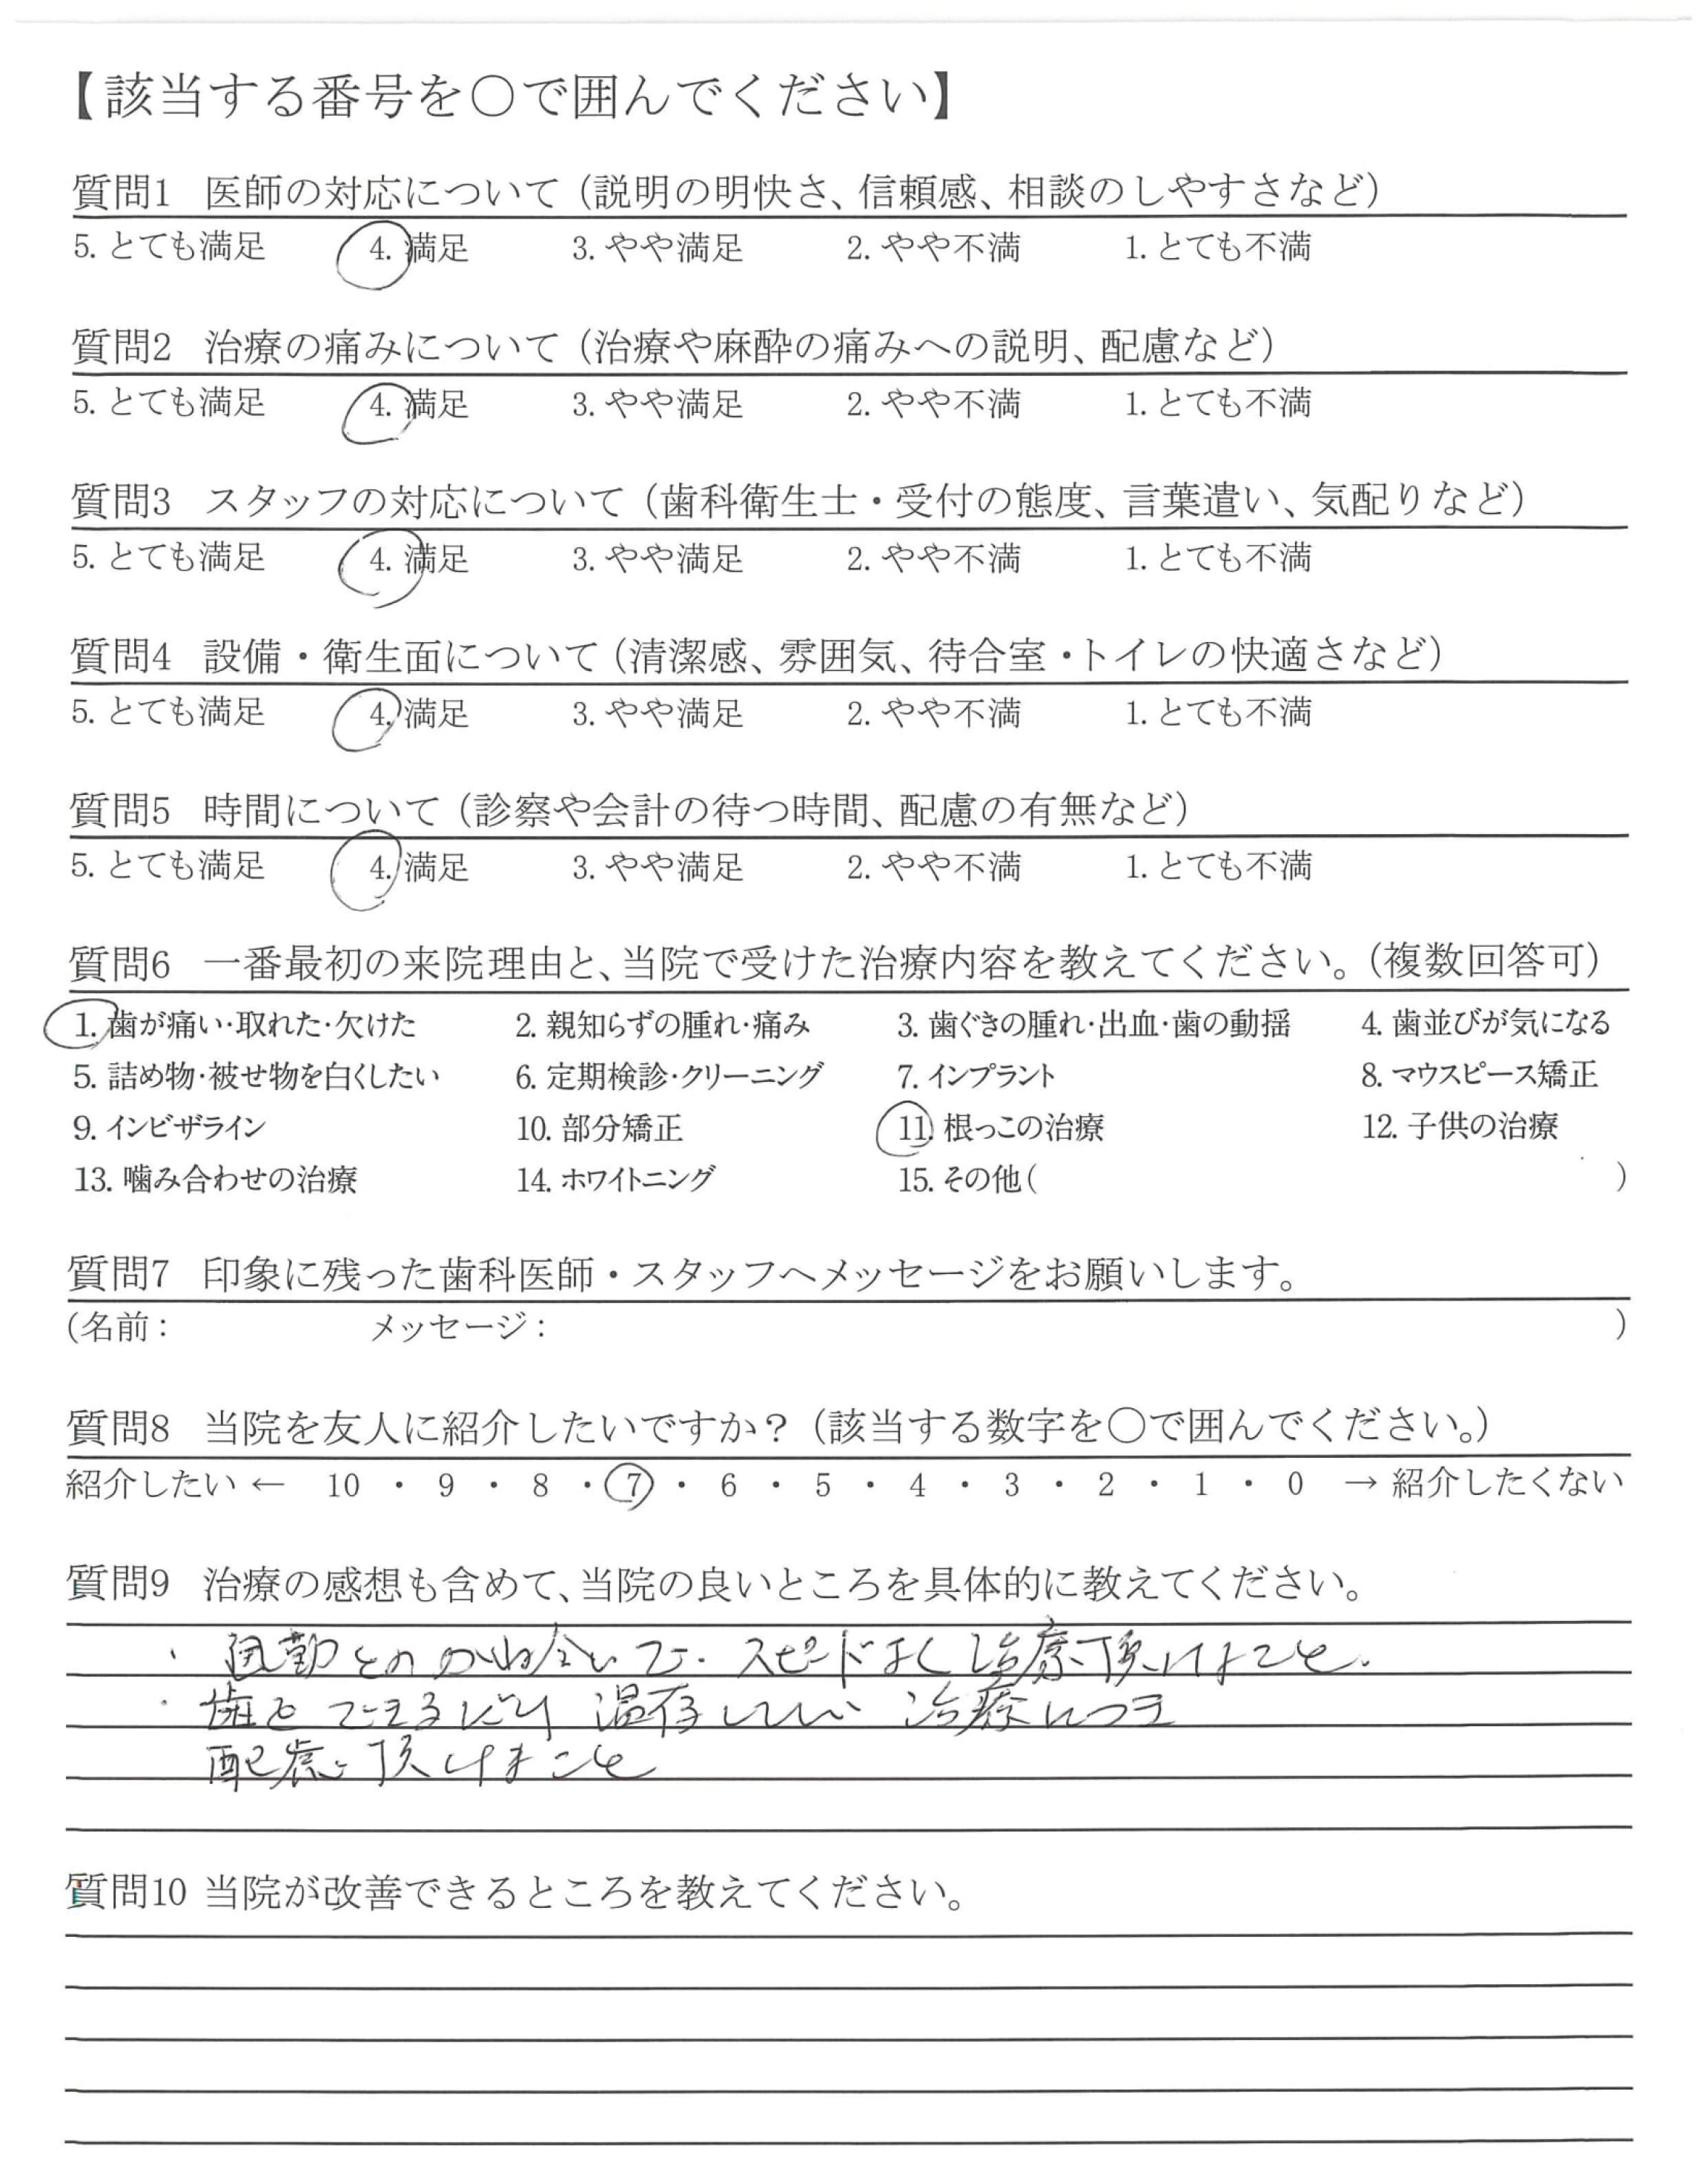 【該当する番号を○で囲んでください】
質問1 医師の対応について（説明の明快さ、信頼感、相談のしやすさなど）
5. とても満足 4. 満足 3. やや満足 2. やや不満 1. とても不満
質問2 治療の痛みについて（治療や麻酔の痛みへの説明、配慮など）
5. とても満足 4. 満足 3. やや満足 2. やや不満 1. とても不満
質問3 スタッフの対応について（歯科衛生士・受付の態度、言葉遣い、気配りなど）
5. とても満足 4. 満足 3. やや満足 2. やや不満 1. とても不満
質問4 設備・衛生面について（清潔感、雰囲気、待合室・トイレの快適さなど）
5. とても満足 4. 満足 3. やや満足 2. やや不満 1. とても不満
質問5 時間について（診察や会計の待つ時間、配慮の有無など）
5. とても満足 4. 満足 3. やや満足 2. やや不満 1. とても不満
質問6 一番最初の来院理由と、当院で受けた治療内容を教えてください。（複数回答可）
1. 歯が痛い・取れた・欠けた 2. 親知らずの腫れ・痛み 3. 歯ぐきの腫れ・出血・歯の動揺 4. 歯並びが気になる
5. 詰め物・被せ物を白くしたい 6. 定期検診・クリーニング 7. インプラント 8. マウスピース矯正
9. インビザライン 10. 部分矯正 11. 根っこの治療 12. 子供の治療
13. 噛み合わせの治療 14. ホワイトニング 15. その他（ ）
質問7 印象に残った歯科医師・スタッフへメッセージをお願いします。
（名前： メッセージ： ）
質問8 当院を友人に紹介したいですか？（該当する数字を○で囲んでください。）
紹介したい ← 10 ・ 9 ・ 8 ・ 7 ・ 6 ・ 5 ・ 4 ・ 3 ・ 2 ・ 1 ・ 0 → 紹介したくない
質問9 治療の感想も含めて、当院の良いところを具体的に教えてください。
・ 通勤とのかね合いで、スピードよく治療頂けたこと。
・ 歯をできるだけ温存したい 治療につき
配慮頂けたこと
質問10 当院が改善できるところを教えてください。